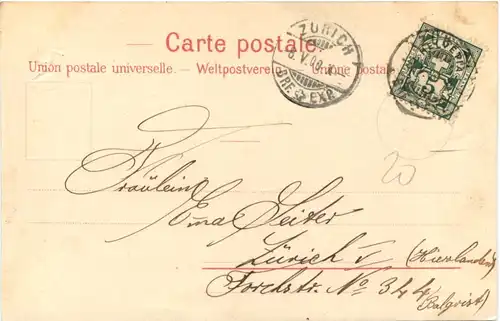 Carte postale.
Union postale universelle. – Weltpostverein – Unione postale
ZÜRICH
BRF. EXP.
5
20
Fräulein
Emma Seiter
Zürich V (Hirslanden)
Forchstr. No 344
(Balgrist)